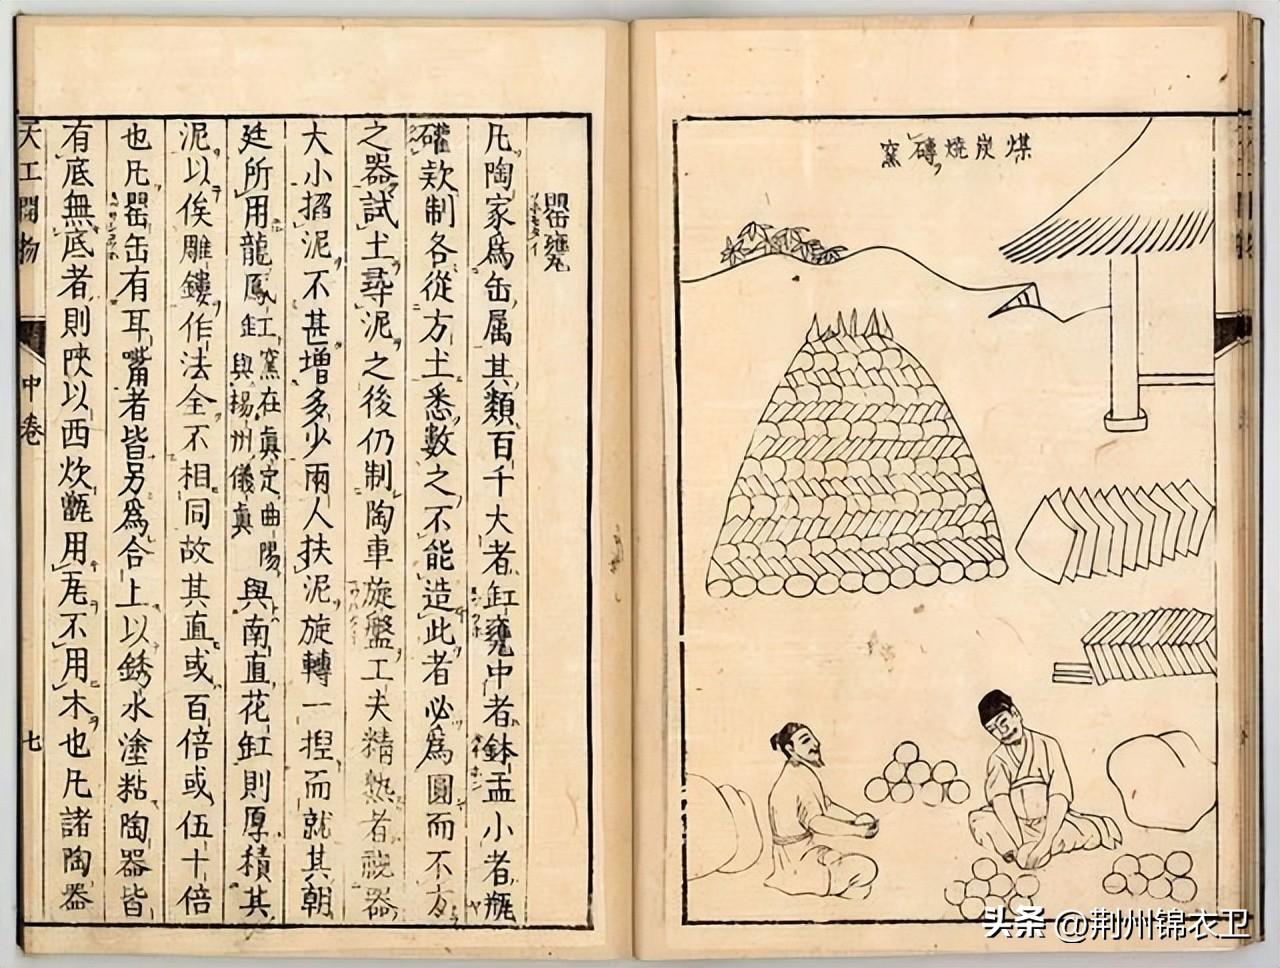 煤炭燒磚窯
罌甕
凡陶家爲缶属其類百千大者缸甕中者鉢盂小者瓶
礶款制各從方土悉數之不能造此者必爲圓而不方
之器試土尋泥之後仍制陶車旋盤工夫精熟者視器
大小掐泥不甚增多少兩人扶泥旋轉一揑而就其朝
廷所用龍鳳缸窯在眞定曲陽與揚州儀眞與南直花缸則厚積其
泥以俟雕鏤作法全不相同故其直或百倍或伍十倍
也凡罌缶有耳嘴者皆另爲合上以銹水塗粘陶器皆
有底無底者則陝以西炊甑用瓦不用木也凡諸陶器
天工開物 中卷 七
头条 @荆州锦衣卫